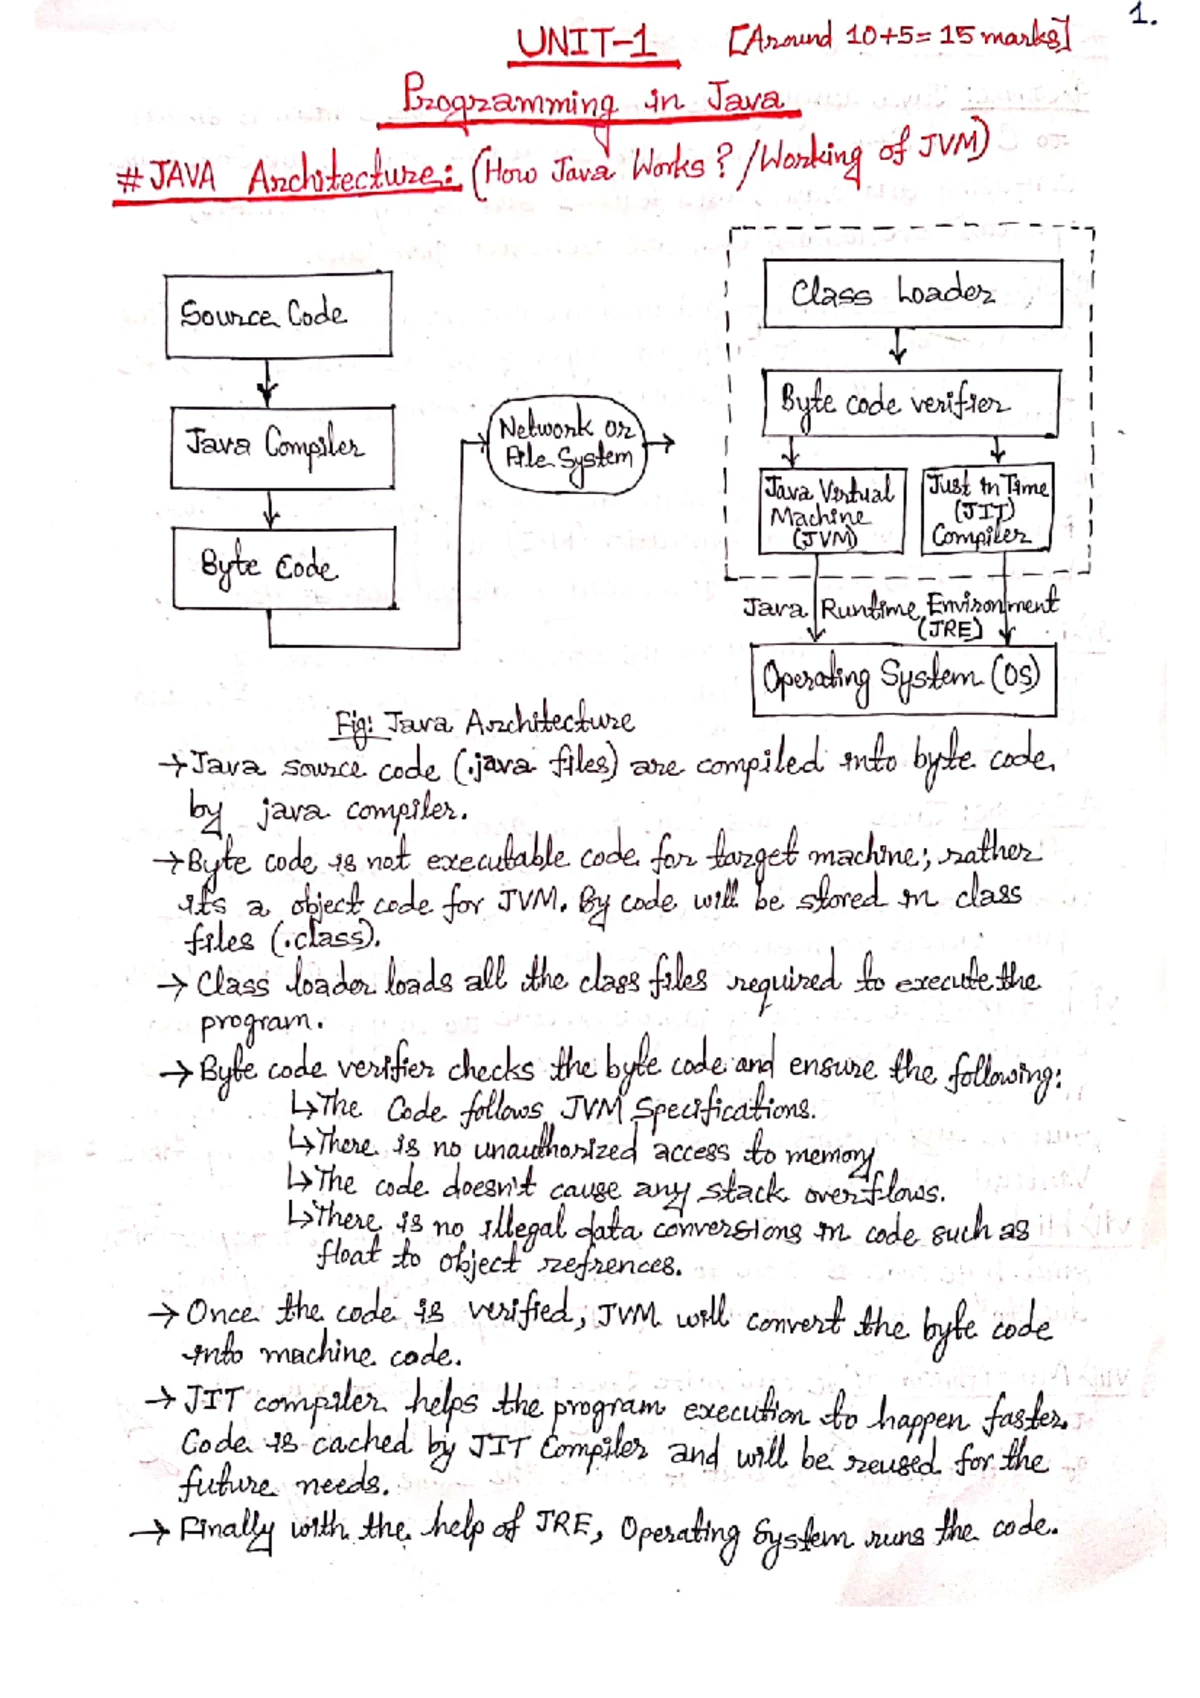 1.
UNIT-1 [Around 10+5=15 marks]
Programming in Java
#JAVA Architecture: (How Java Works? /Working of JVM)
Source Code
Java Compiler
Byte Code
Network or
File System
Class Loader
Byte code verifier
Java Virtual
Machine
(JVM)
Just in Time
(JIT)
Compiler
Java Runtime Environment
(JRE)
Operating System (OS)
Fig: Java Architecture
→Java source code (.java files) are compiled into byte code
by java compiler.
→Byte code is not executable code for target machine; rather
its a object code for JVM. By code will be stored in class
files (.class).
→ Class loader loads all the class files required to execute the
program.
→ Byte code verifier checks the byte code and ensure the following:
↳The Code follows JVM Specifications.
↳There is no unauthorized access to memory
↳The code doesn't cause any stack overflows.
↳There is no illegal data conversions in code such as
float to object refrences.
→ Once the code is verified, JVM will convert the byte code
into machine code.
→ JIT compiler helps the program execution to happen faster.
Code is cached by JIT Compiler and will be reused for the
future needs.
→ Finally with the help of JRE, Operating System runs the code.